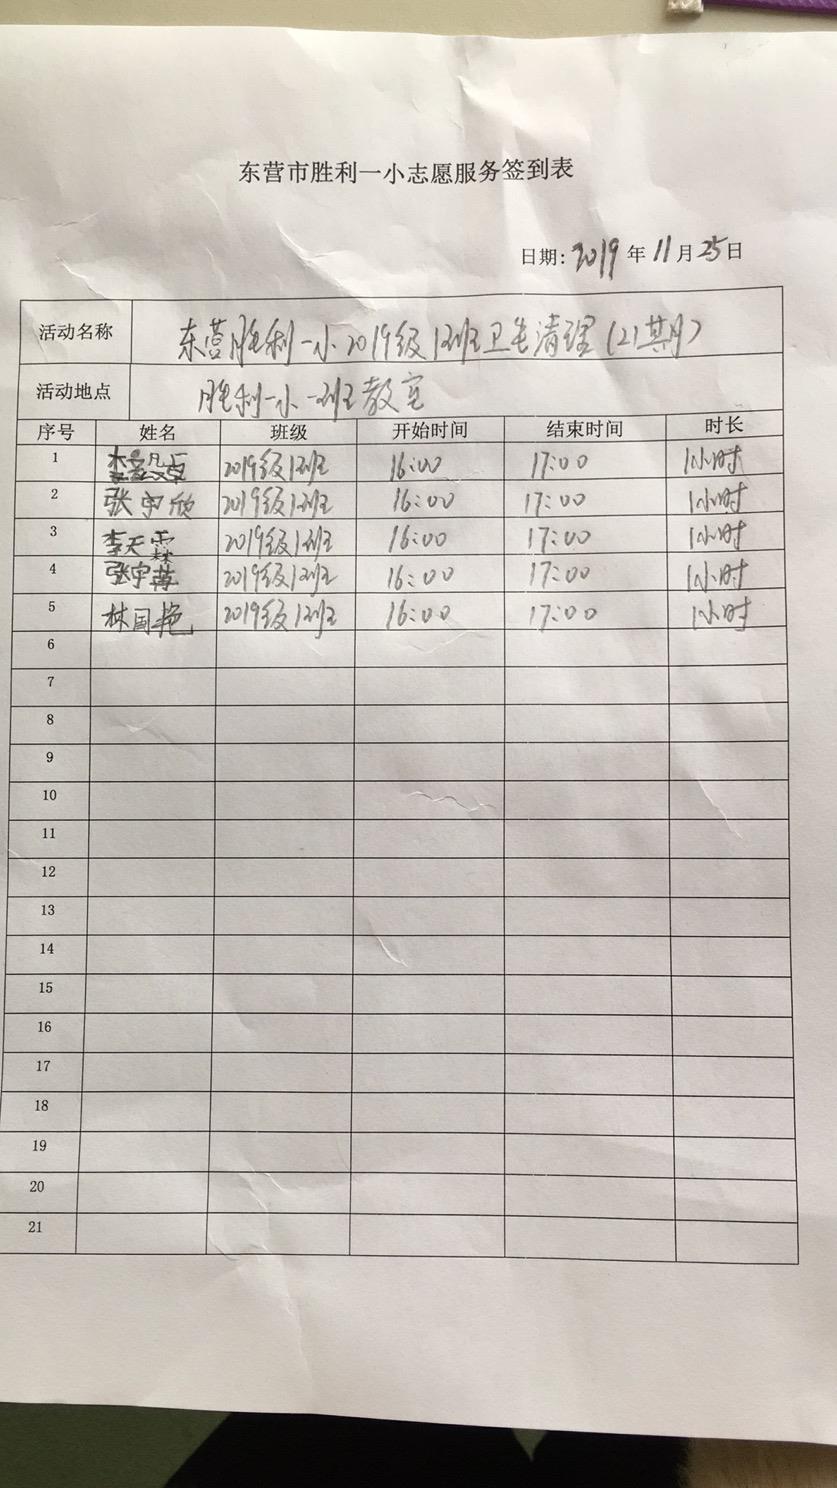 东营市胜利一小志愿服务签到表
日期: 2019 年 11 月 25 日
活动名称 东营胜利一小2019级1班卫生清理(21期)
活动地点 胜利一小一班教室
序号 姓名 班级 开始时间 结束时间 时长
1 2019级1班 16:00 17:00 1小时
2 张宇欣 2019级1班 16:00 17:00 1小时
3 李天霖 2019级1班 16:00 17:00 1小时
4 张宇 2019级1班 16:00 17:00 1小时
5 林国艳 2019级1班 16:00 17:00 1小时
6
7
8
9
10
11
12
13
14
15
16
17
18
19
20
21